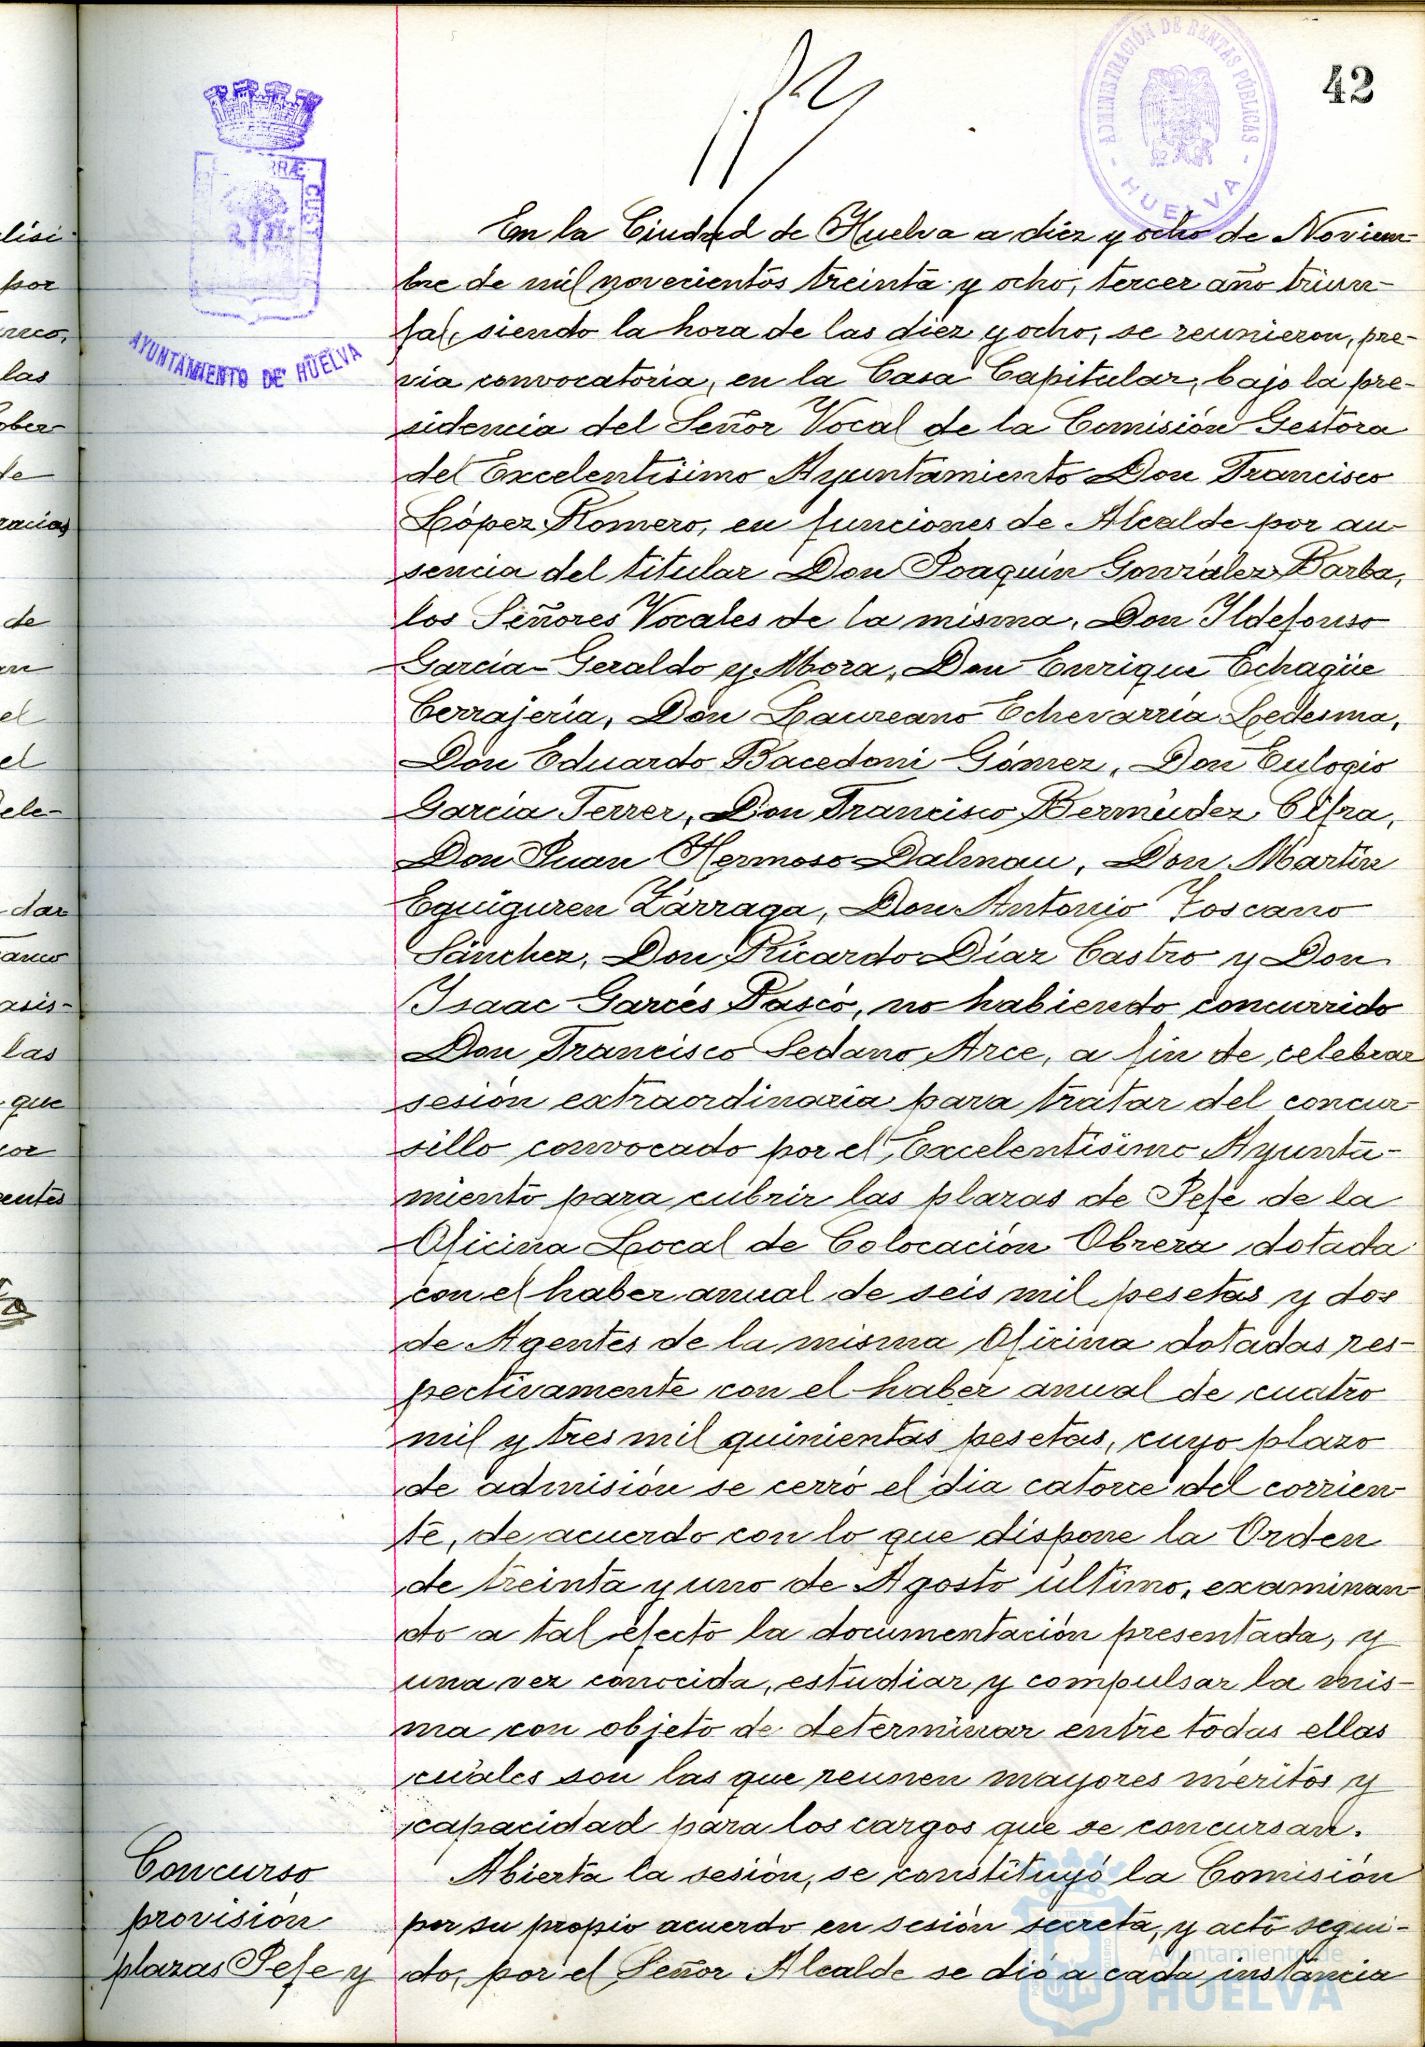 42
ADMINISTRACIÓN DE RENTAS PÚBLICAS
- HUELVA -
AYUNTAMIENTO DE HUELVA
En la Ciudad de Huelva a diez y ocho de Noviem-
bre de mil novecientos treinta y ocho, tercer año triun-
fal, siendo la hora de las diez y ocho, se reunieron, pre-
via convocatoria, en la Casa Capitular, bajo la pre-
sidencia del Señor Vocal de la Comisión Gestora
del Excelentísimo Ayuntamiento Don Francisco
López Romero, en funciones de Alcalde por au-
sencia del titular Don Joaquín González Barba,
los Señores Vocales de la misma, Don Ildefonso
García-Geraldo y Mora, Don Enrique Echagüe
Cerrajería, Don Laureano Echevarría Ledesma,
Don Eduardo Bacedoni Gómez, Don Eulogio
García Ferrer, Don Francisco Bermúdez Cifra,
Don Juan Hermoso Dalmau, Don Martín
Eguiguren Zárraga, Don Antonio Toscano
Sánchez, Don Ricardo Díaz Castro y Don
Isaac Garcés Pascó, no habiendo concurrido
Don Francisco Sedano Arce, a fin de celebrar
sesión extraordinaria para tratar del concur-
sillo convocado por el Excelentísimo Ayunta-
miento para cubrir las plazas de Jefe de la
Oficina Local de Colocación Obrera dotada
con el haber anual de seis mil pesetas y dos
de Agentes de la misma Oficina dotadas res-
pectivamente con el haber anual de cuatro
mil y tres mil quinientas pesetas, cuyo plazo
de admisión se cerró el día catorce del corrien-
te, de acuerdo con lo que dispone la Orden
de treinta y uno de Agosto último, examinan-
do a tal efecto la documentación presentada, y
una vez conocida, estudiar y compulsar la mis-
ma con objeto de determinar entre todas ellas
cuáles son las que reunen mayores méritos y
capacidad para los cargos que se concursan.
Concurso
provisión
plazas Jefe y
Abierta la sesión, se constituyó la Comisión
por su propio acuerdo en sesión secreta, y acto segui-
do, por el Señor Alcalde se dió a cada instancia
Ayuntamiento de
HUELVA